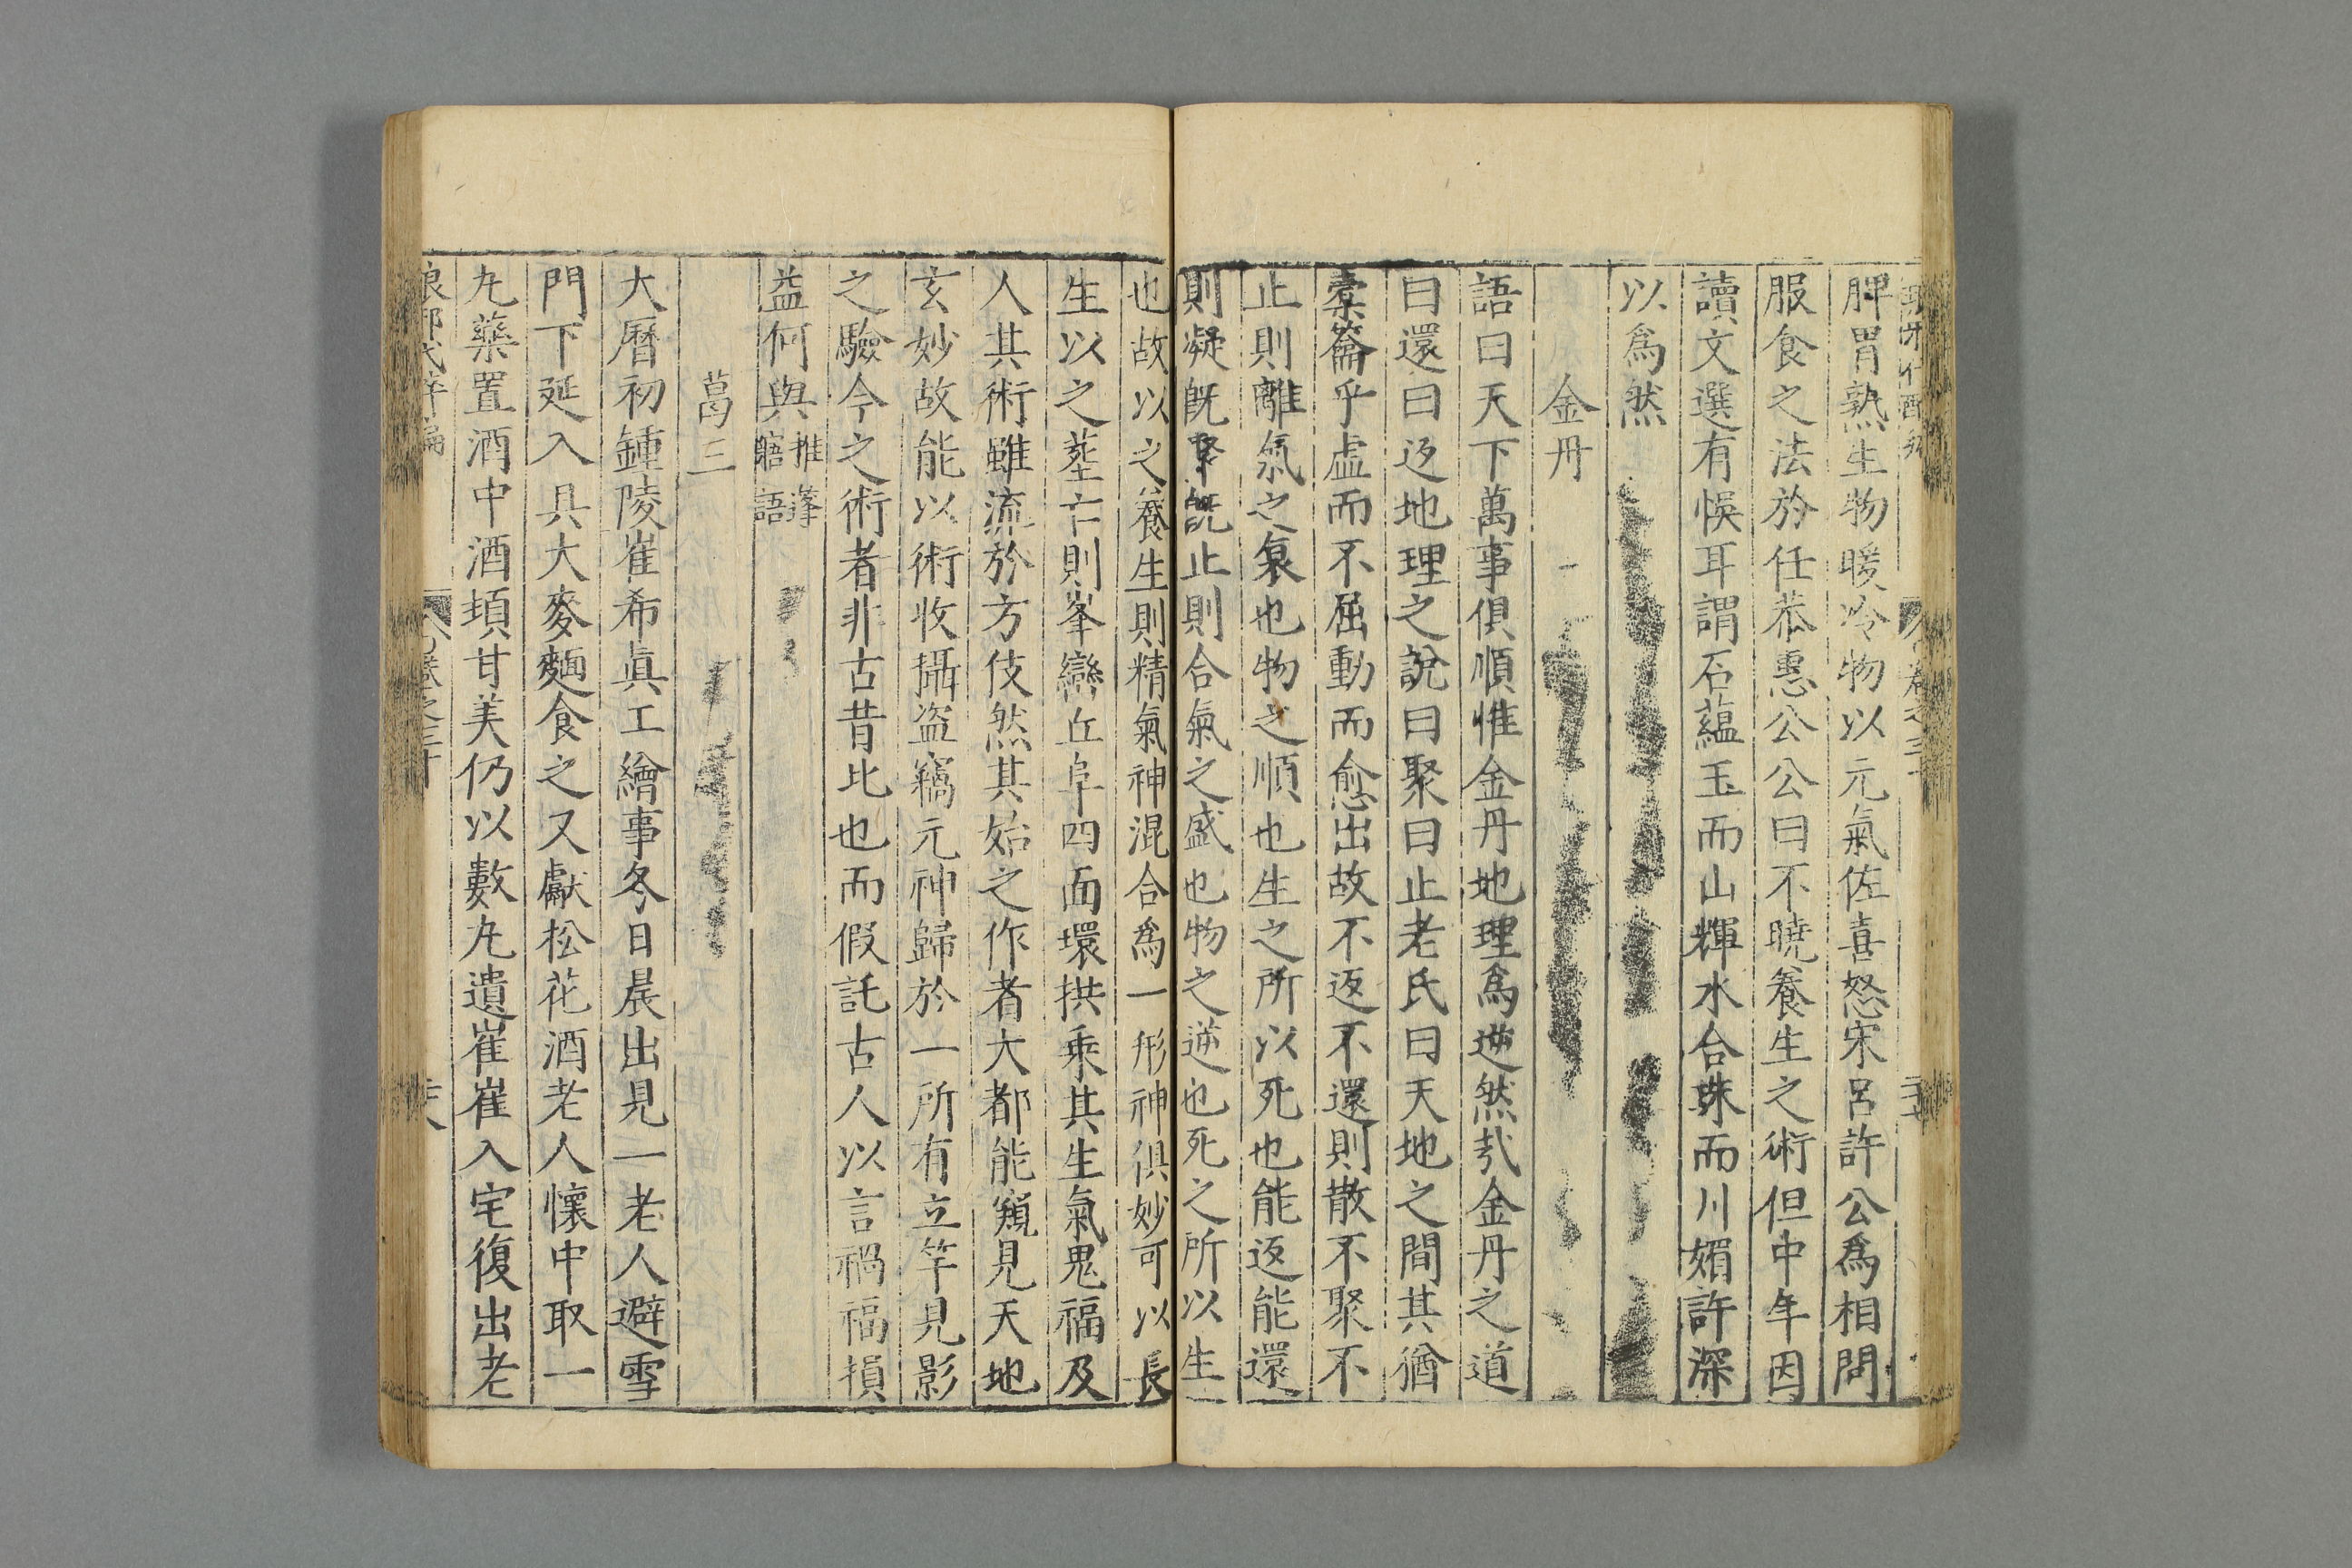 脾胃熟生物暖冷物以元氣佐喜怒宋呂許公爲相問
服食之法於任恭惠公公曰不曉養生之術但中年因
讀文選有悞耳謂石蘊玉而山輝水含珠而川媚許深
以爲然
金丹
語曰天下萬事俱順惟金丹地理爲逆然哉金丹之道
曰還曰返地理之說曰聚曰止老氏曰天地之間其猶
橐籥乎虛而不屈動而愈出故不返不還則散不聚不
止則離氣之衰也物之順也生之所以死也能返能還
則凝旣聚旣止則合氣之盛也物之逆也死之所以生
也故以之養生則精氣神混合爲一形神俱妙可以長
生以之塟亡則峯巒丘阜四面環拱乘其生氣鬼福及
人其術雖流於方伎然其始之作者大都能窺見天地
玄妙故能以術收攝盜竊元神歸於一所有立竿見影
之驗今之術者非古昔比也而假託古人以言禍福損
益何與推蓬
語
葛三
大曆初鍾陵崔希眞工繪事冬日晨出見一老人避雪
門下延入具大麥麵食之又獻松花酒老人懷中取一
九藥置酒中酒頃甘美仍以數九遺崔崔入宅復出老
琅邪代醉編 卷之三十 二十八